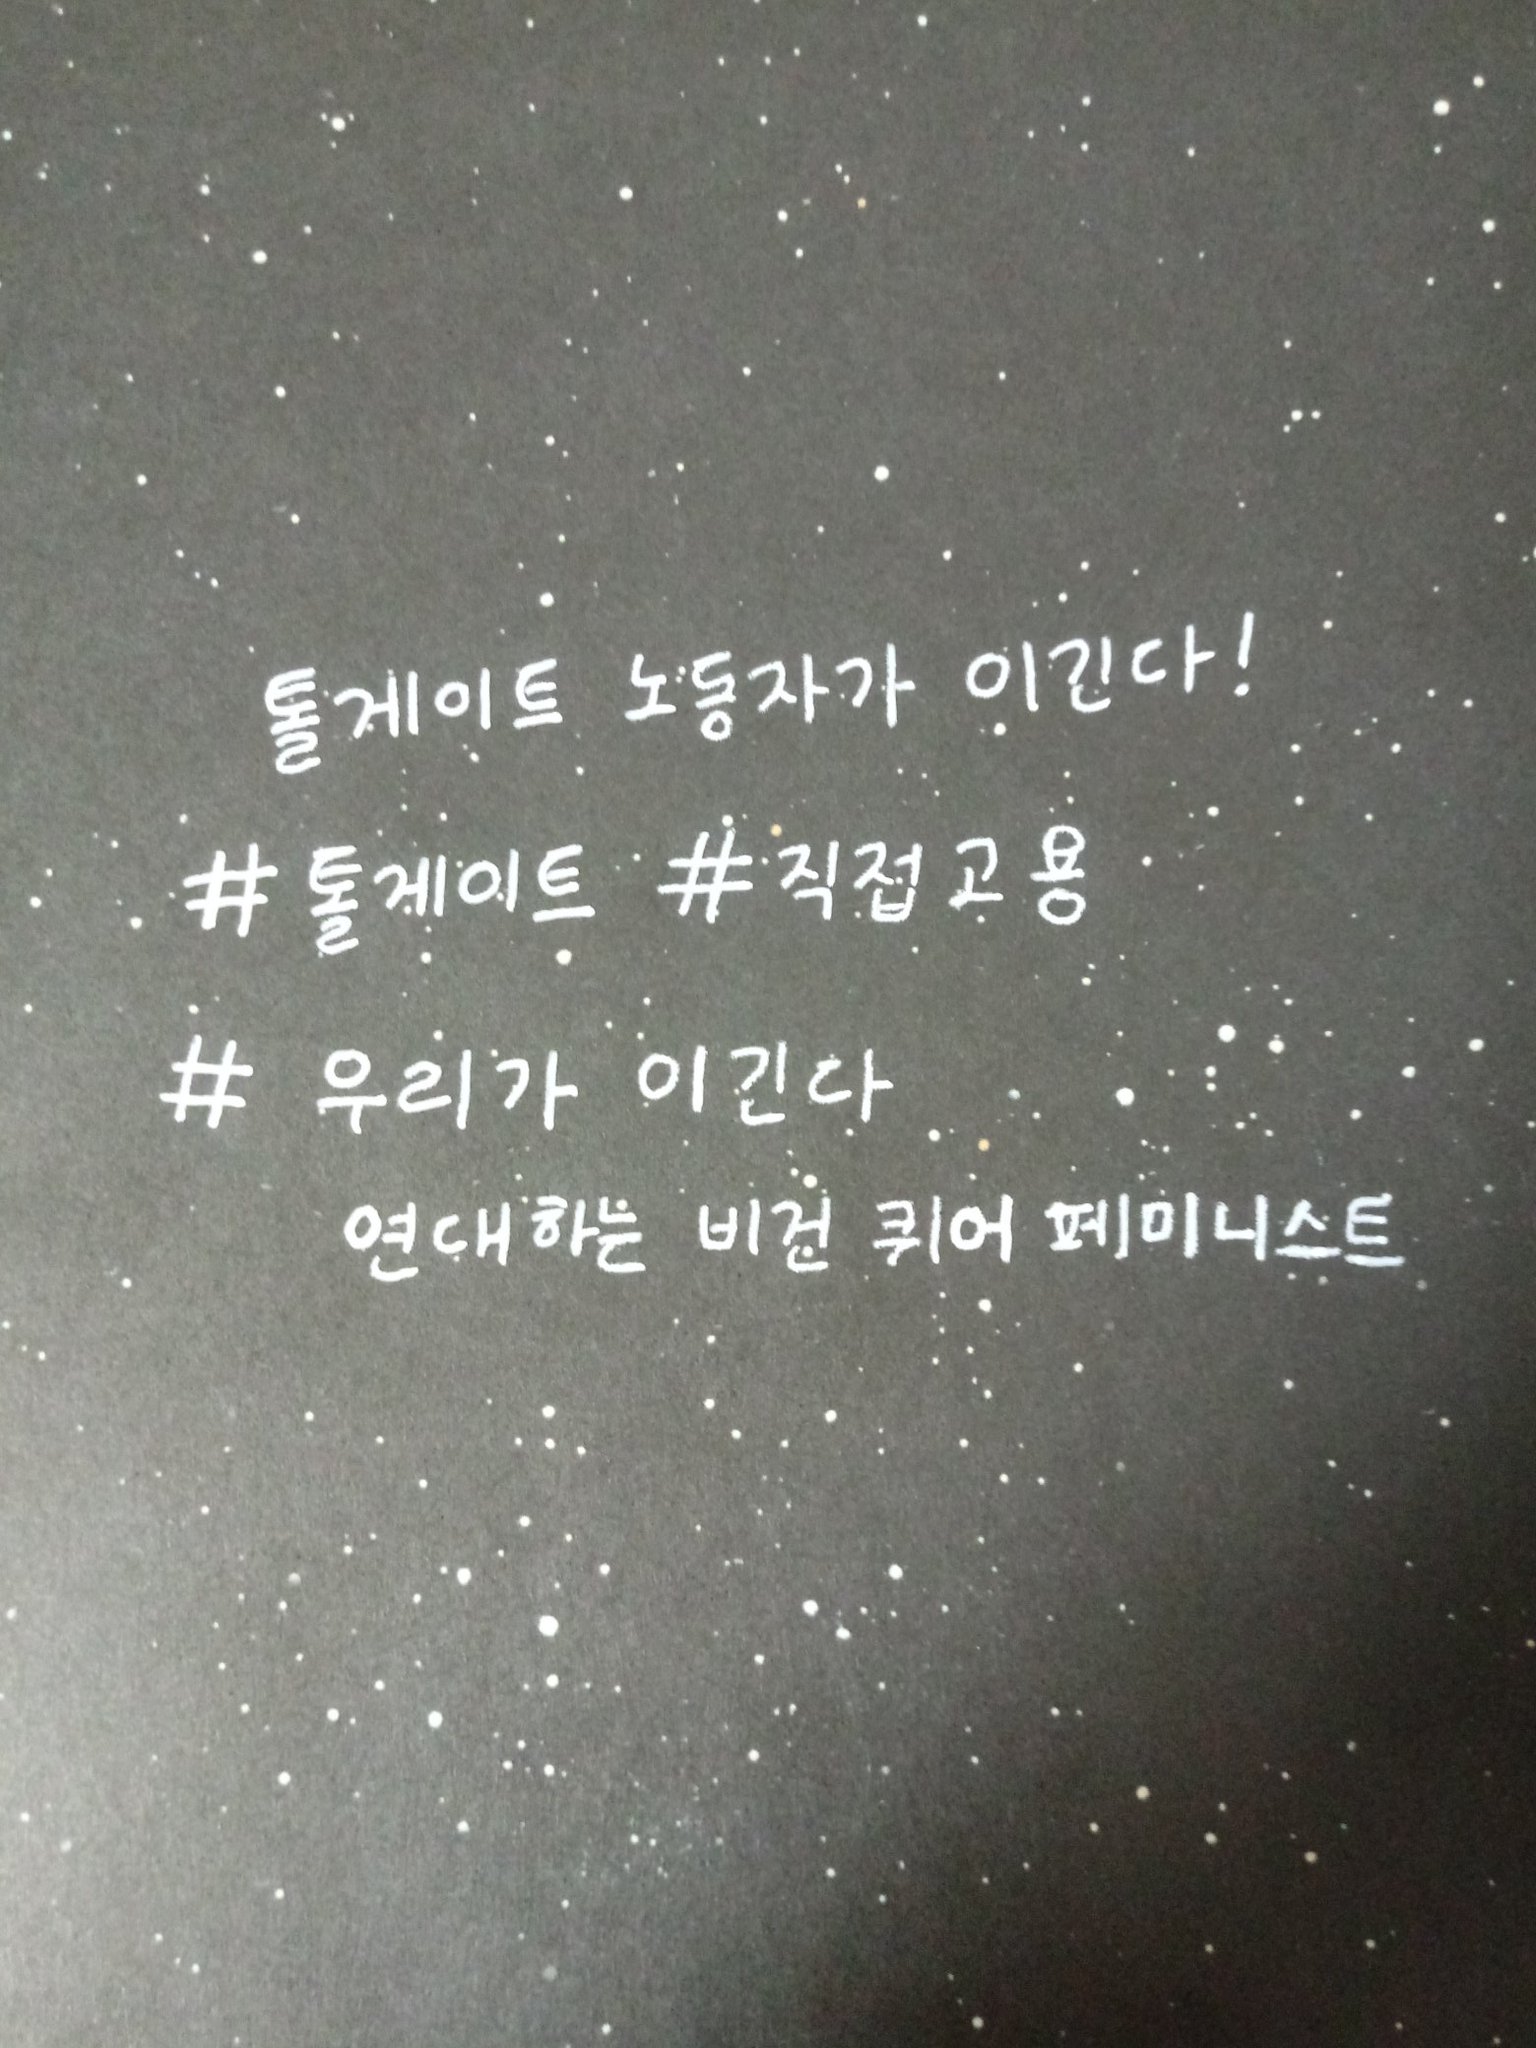 톨게이트 노동자가 이긴다!
#톨게이트 #직접고용
# 우리가 이긴다
연대하는 비건 퀴어 페미니스트